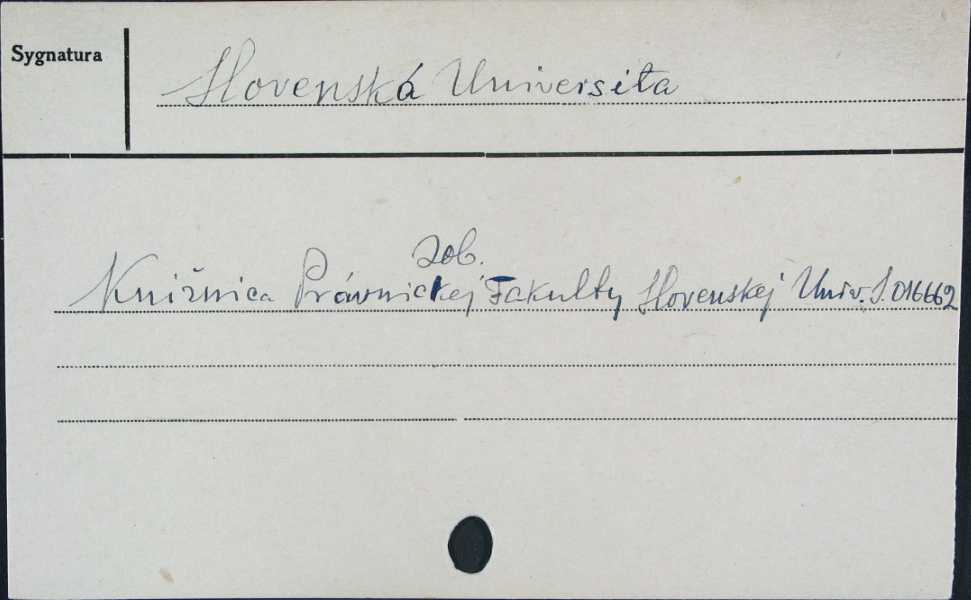 Sygnatura
Slovenská Universita
zob.
Knižnica Právnickej Fakulty Slovenskej Univ. S.016662